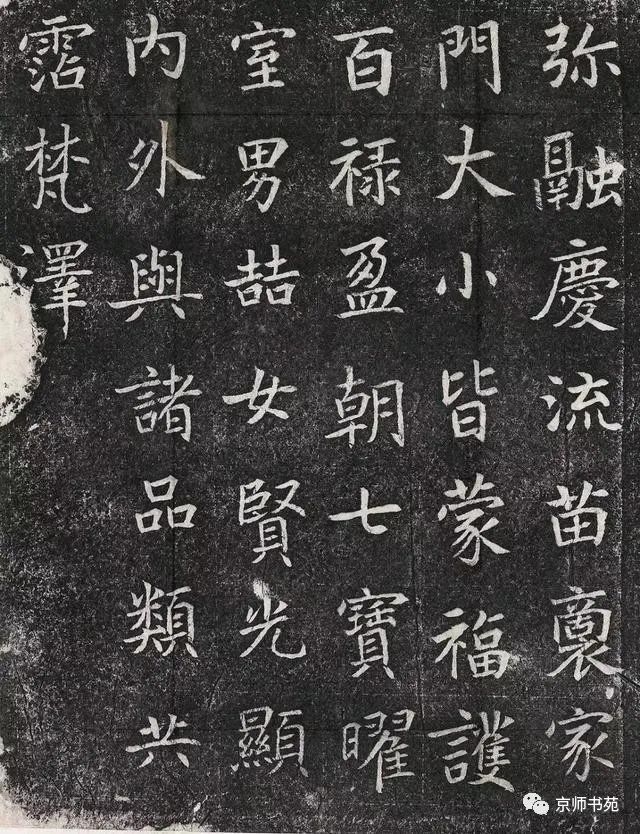 弥融慶流苗裔家
門大小皆蒙福護
百禄盈朝七寶曜
室男喆女賢光顯
内外與諸品類共
霑梵澤
京师书苑